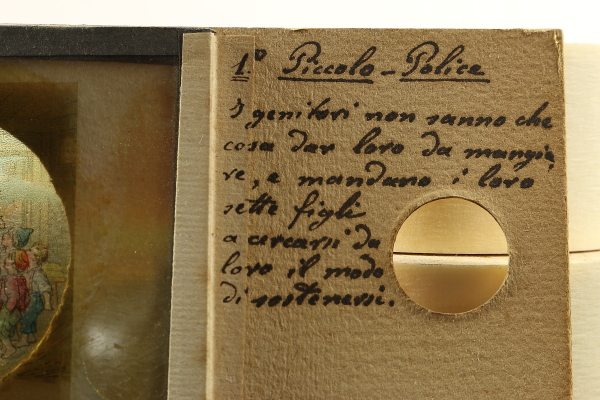 1.º Piccolo - Police
I genitori non sanno che
cosa dar loro da mangia
re, e mandano i loro
sette figli
a cercarsi da
loro il modo
di sostenersi.